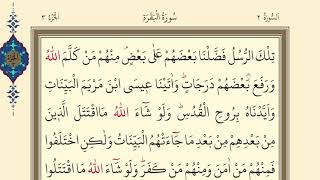 السورة ٢
سورة البقرة
الجزء ٣
تِلْكَ الرُّسُلُ فَضَّلْنَا بَعْضَهُمْ عَلٰى بَعْضٍ مِنْهُمْ مَنْ كَلَّمَ اللّٰهُ
وَرَفَعَ بَعْضَهُمْ دَرَجَاتٍ وَاٰتَيْنَا عِيسَى ابْنَ مَرْيَمَ الْبَيِّنَاتِ
وَاَيَّدْنَاهُ بِرُوحِ الْقُدُسِ وَلَوْ شَاءَ اللّٰهُ مَااقْتَتَلَ الَّذِينَ
مِنْ بَعْدِهِمْ مِنْ بَعْدِ مَا جَاءَتْهُمُ الْبَيِّنَاتُ وَلٰكِنِ اخْتَلَفُوا
فَمِنْهُمْ مَنْ اٰمَنَ وَمِنْهُمْ مَنْ كَفَرَ وَلَوْ شَاءَ اللّٰهُ مَا اقْتَتَلُوا